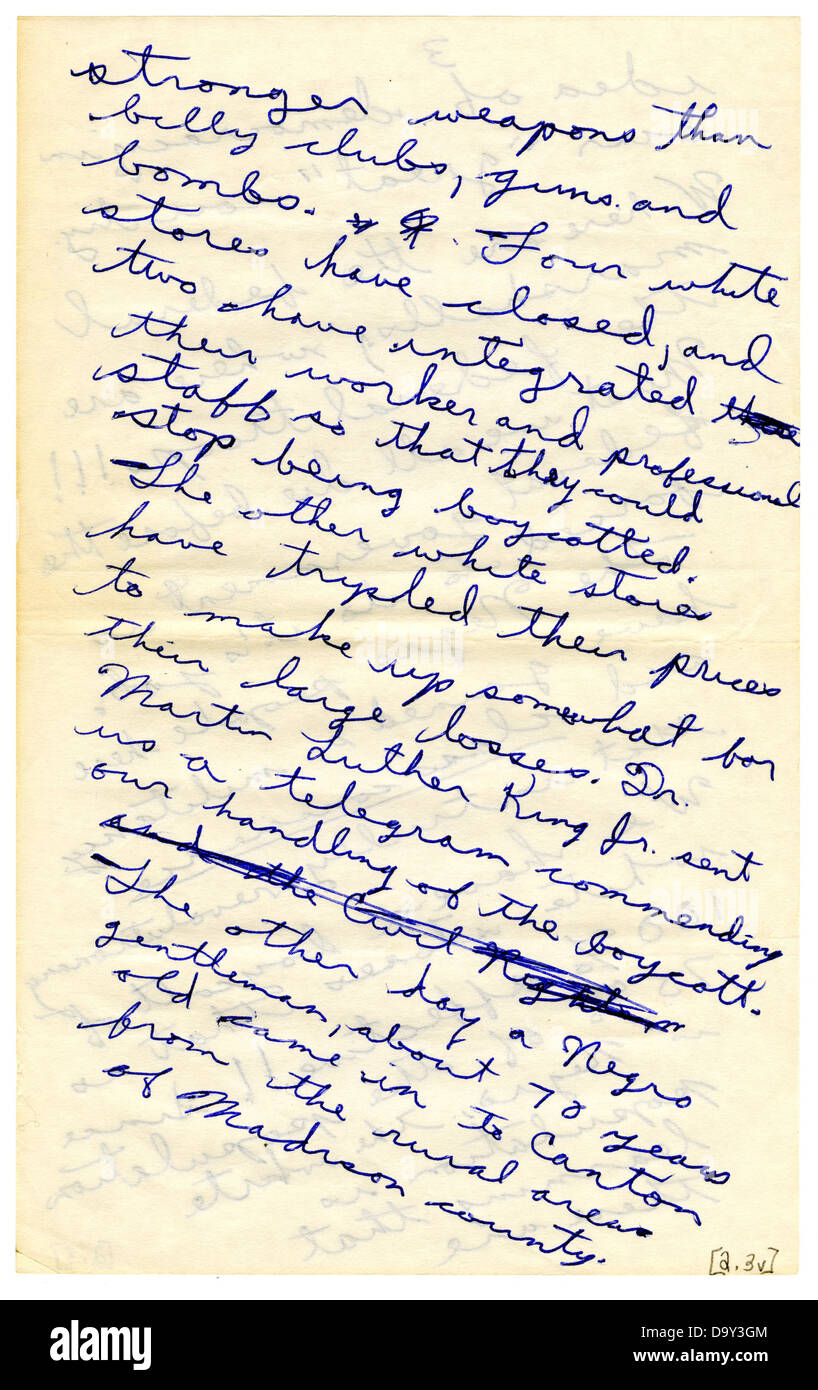 stronger weapons than
billy clubs, guns and
bombs. Four white
stores have closed, and
two have integrated
their worker and professional
staff so that they could
stop being boycotted.
The other white stores
have trypled their prices
to make up somewhat for
their large losses. Dr.
Martin Luther King Jr. sent
us a telegram commending
our handling of the boycott.
and the Civil Rights
The other day a Negro
gentleman, about 70 years
old came in to Canton
from the rural areas
of Madison county.
[2.3v]
alamy
D9Y3GM
www.alamy.com